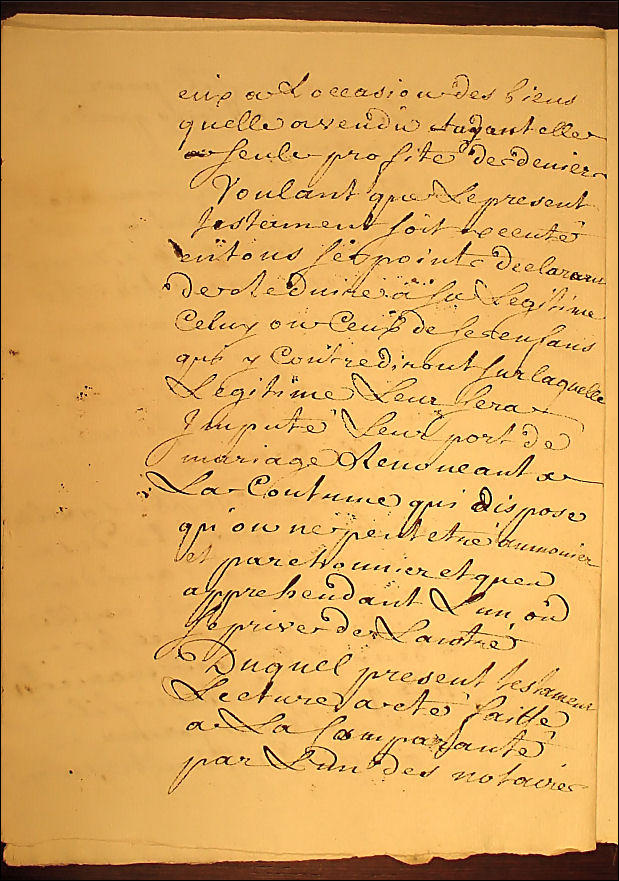 eux a Loccasion des biens
quelle a vendu ayant elle
seule profité des deniers
Voulant que Le present
testament soit execute
en tous ses points declarant
de Reduire a sa Legitime
Celuy ou Ceux de ses enfans
qui y Contrediront sur laquelle
Legitime Leur sera
Imputé Leur port de
mariage Renonceant a
La Coutume qui dispose
qu'on ne peut etre aumonier
et parchonnier et quen
apprehendant L'un on
se prive de Lautre
Duquel present testament
Lecture a eté faitte
a La Comparante
par L'un des notaires